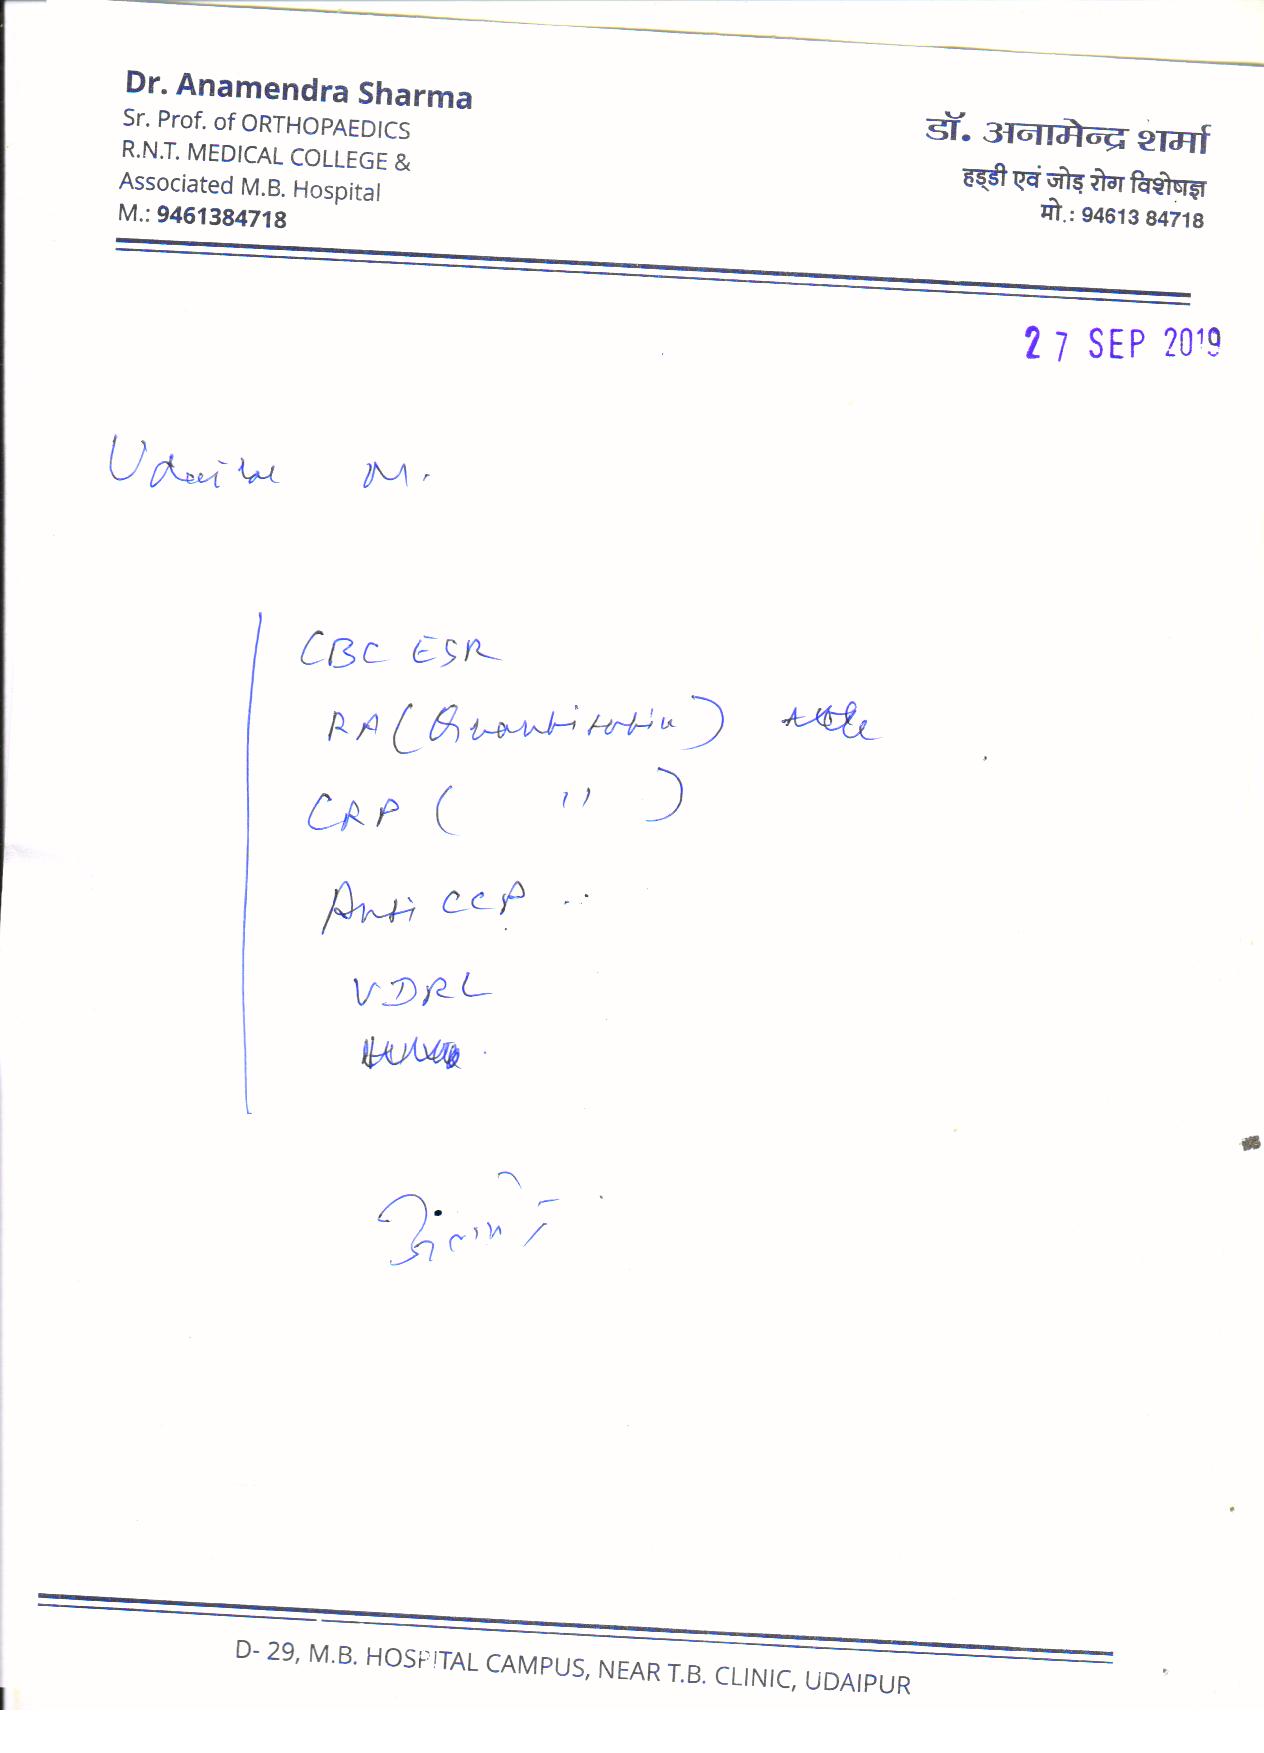 Dr. Anamendra Sharma
Sr. Prof. of ORTHOPAEDICS
R.N.T. MEDICAL COLLEGE &
Associated M.B. Hospital
M.: 9461384718
डॉ. अनामेन्द्र शर्मा
हड्डी एवं जोड़ रोग विशेषज्ञ
मो.: 94613 84718
27 SEP 2019
M.
CBC ESR
RA (Quantitative)
CRP ( " )
Anti CCP
VDRL
D- 29, M.B. HOSPITAL CAMPUS, NEAR T.B. CLINIC, UDAIPUR